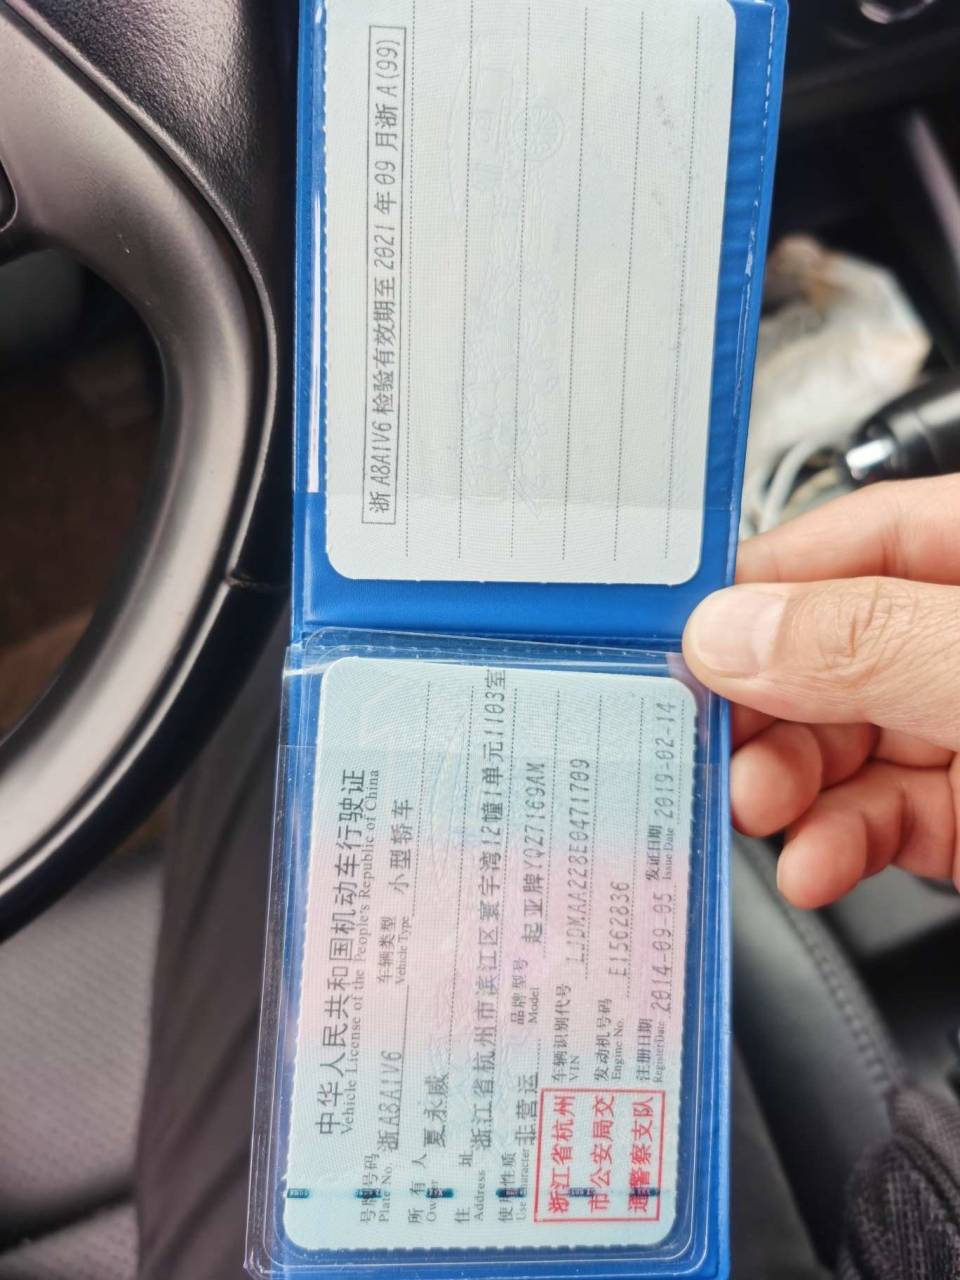 浙A8A1V6检验有效期至2021年09月浙A(99)
中华人民共和国机动车行驶证
Vehicle License of the People's Republic of China
号牌号码 浙A8A1V6 车辆类型 小型轿车
Plate No. Vehicle Type
所有人 夏永威
Owner
住址 浙江省杭州市滨江区寰宇湾12幢1单元1103室
Address
使用性质 非营运 品牌型号 起亚牌YQZ7169AM
Use Character Model
浙江省杭州
市公安局交
通警察支队
车辆识别代号 LJDMAA228E0471709
VIN
发动机号码 E1562836
Engine No.
注册日期 2014-09-05 发证日期 2019-02-14
Register Date Issue Date